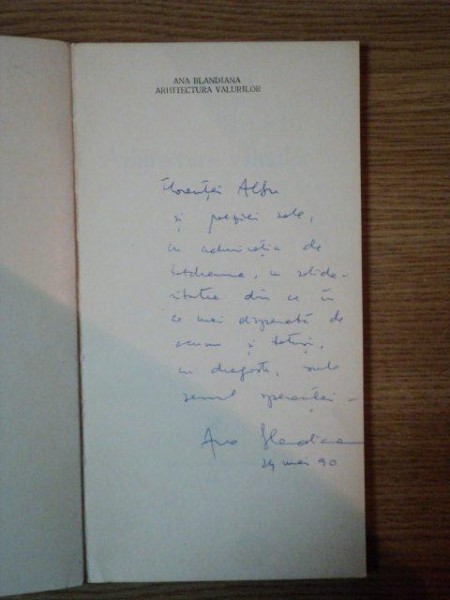 ANA BLANDIANA
ARHITECTURA VALURILOR
Florenței Albu
și poeziei sale,
cu admirația de
totdeauna, cu solida-
ritatea din ce în
ce mai disperată de
acum și totuși,
cu dragoste, sub
semnul speranței –
Ana Blandiana
24 mai 90